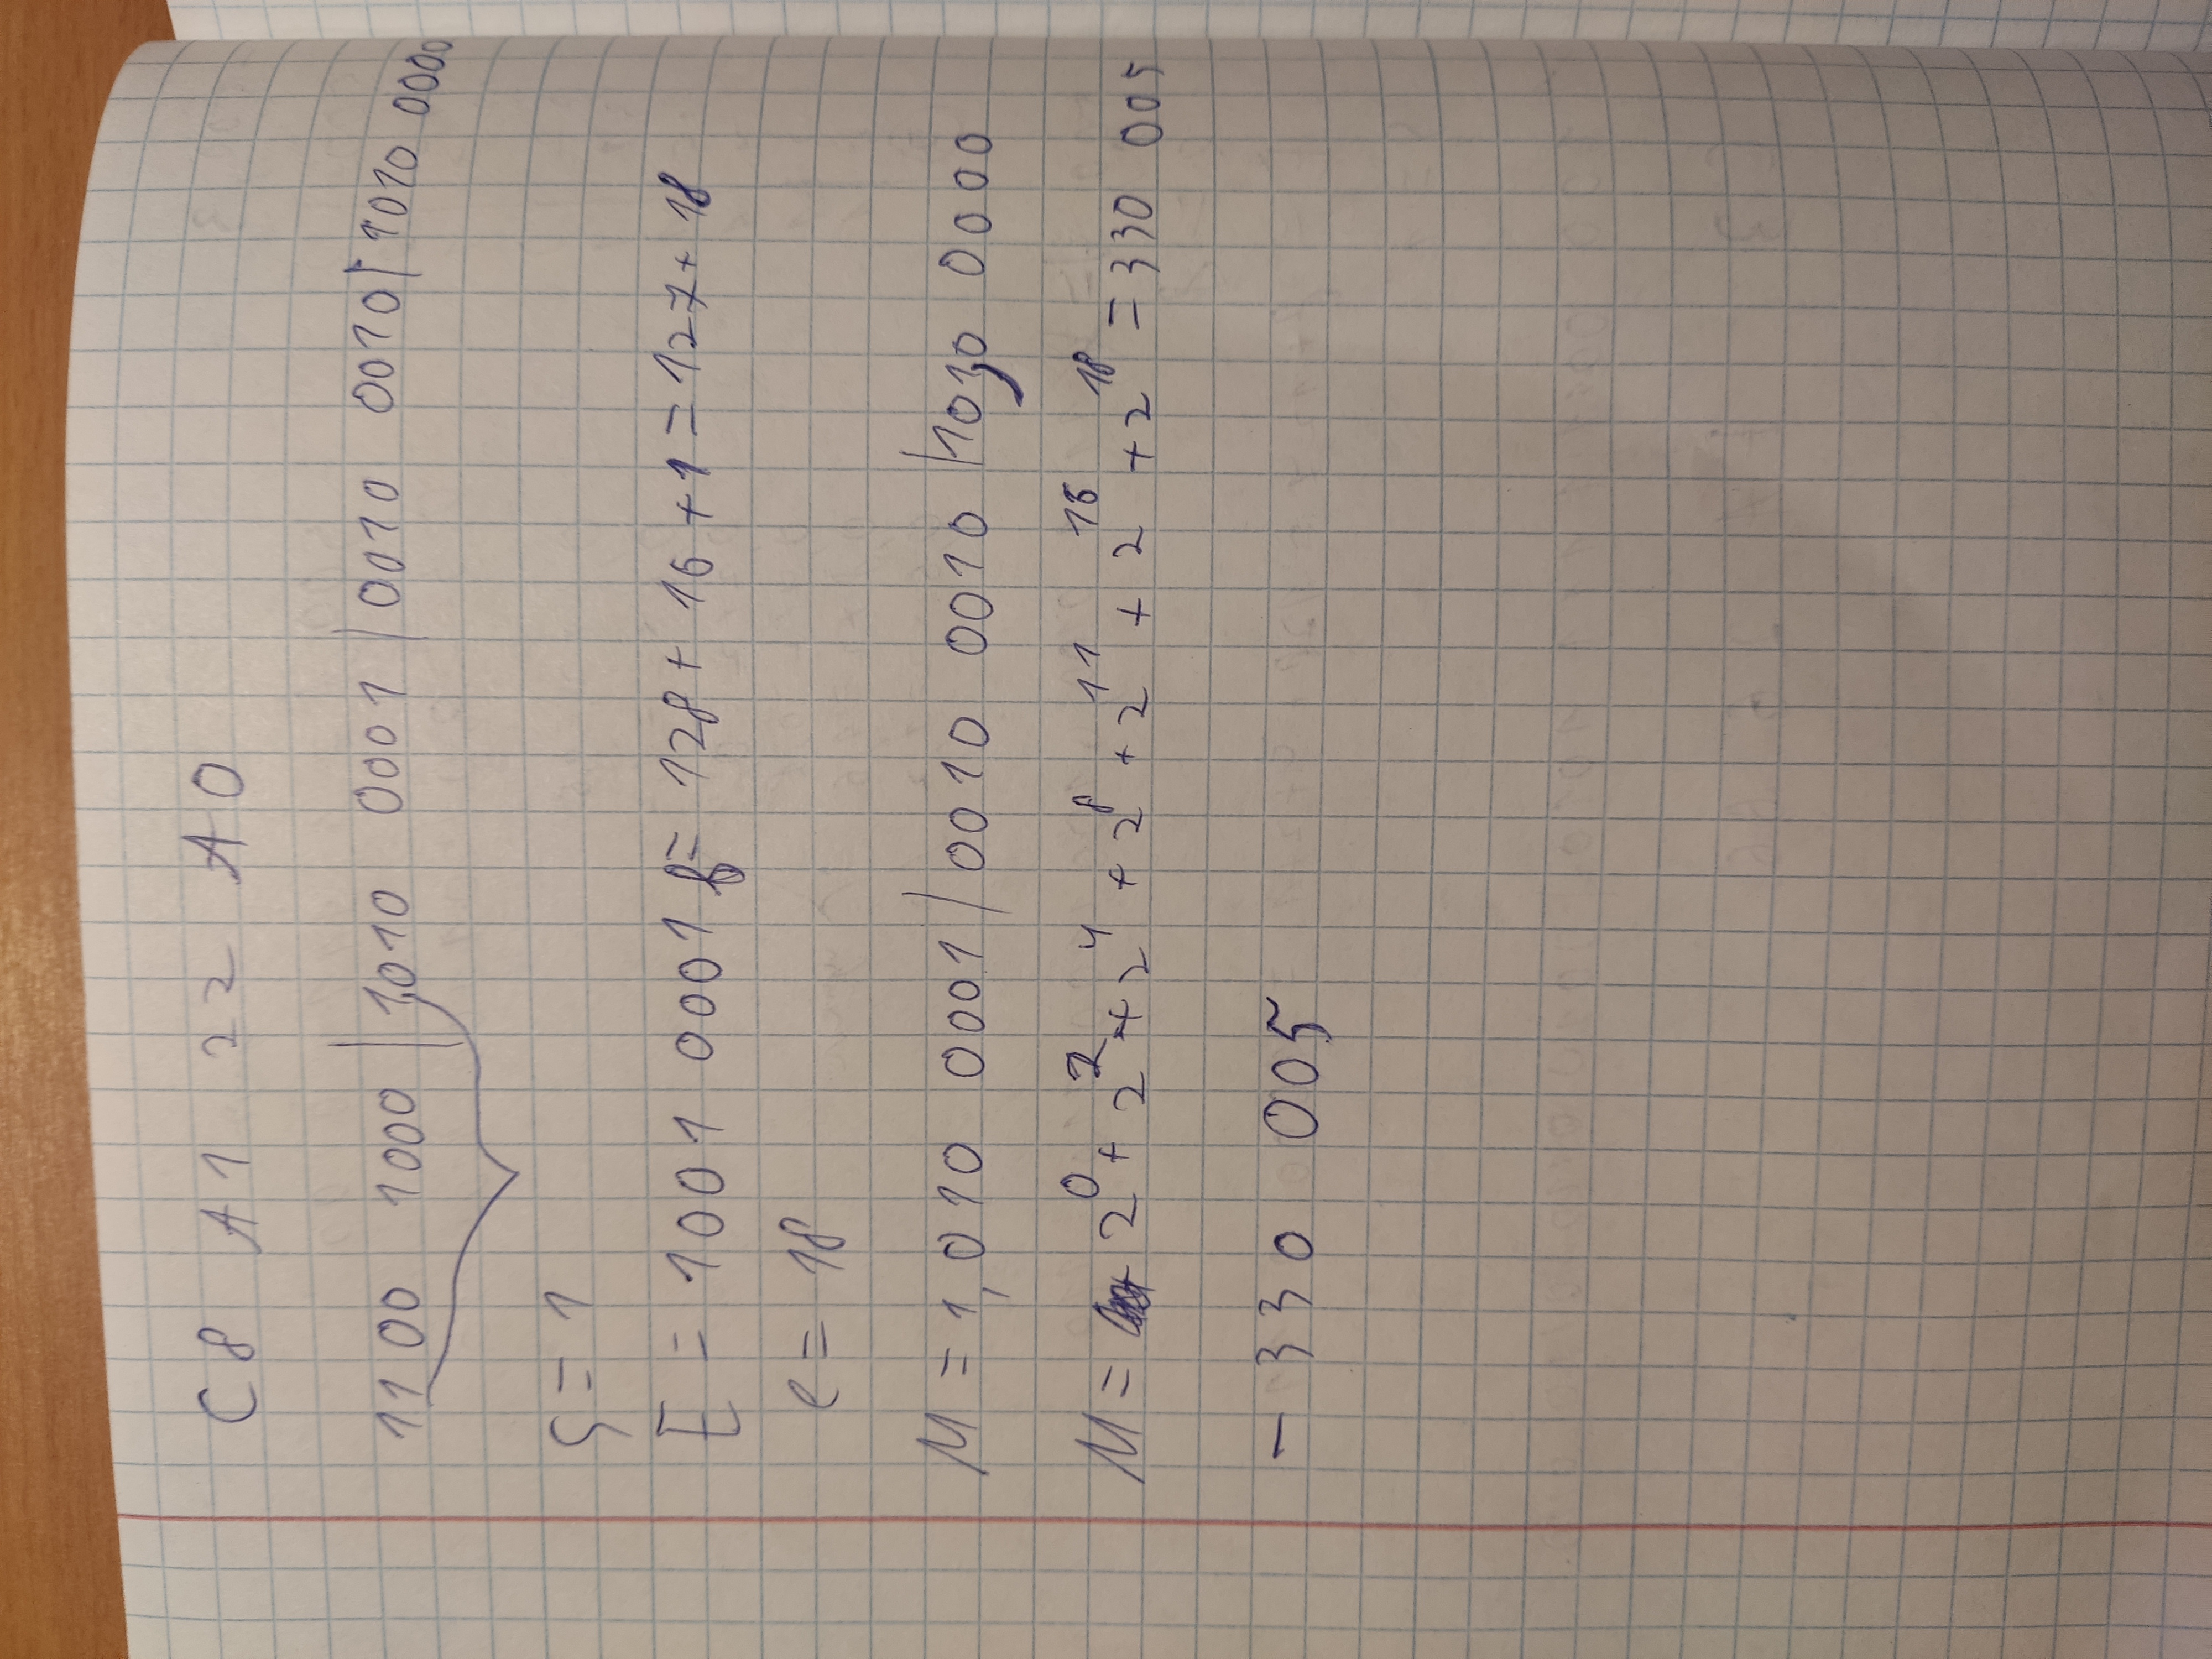 C8 A1 22 A0
1100 1000 | 1010 0001 | 0010 0010 | 1010 0000
S = 1
E = 1001 0001 = 128 + 16 + 1 = 127 + 18
e = 18
M = 1,010 0001 | 0010 0010 | 101,0 0000
M = 2⁰ + 2² + 2⁴ + 2⁸ + 2¹¹ + 2¹⁶ + 2¹⁸ = 330 005
- 330 005